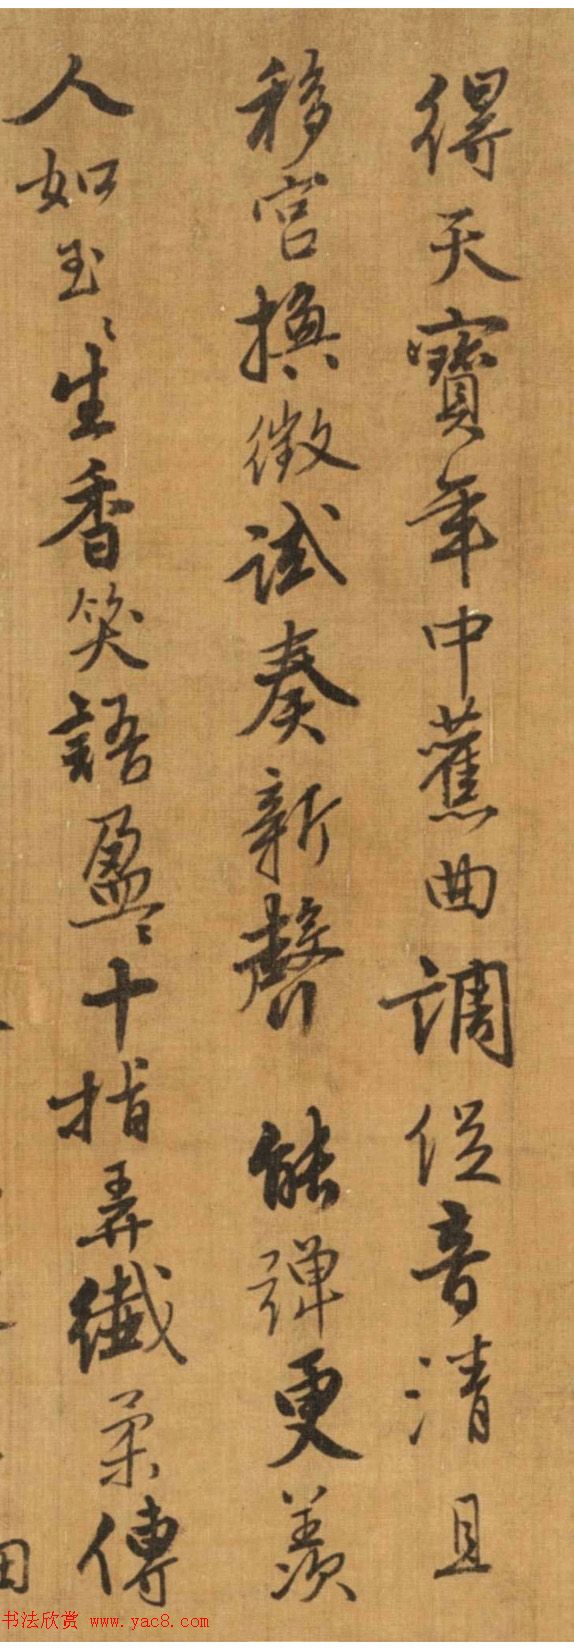 得天寶年中舊曲調從音清且
移宮換徵試奏新聲能彈更羨
人如玉〻生香笑語盈〻十指弄纖柔傳
书法欣赏 www.yac8.com